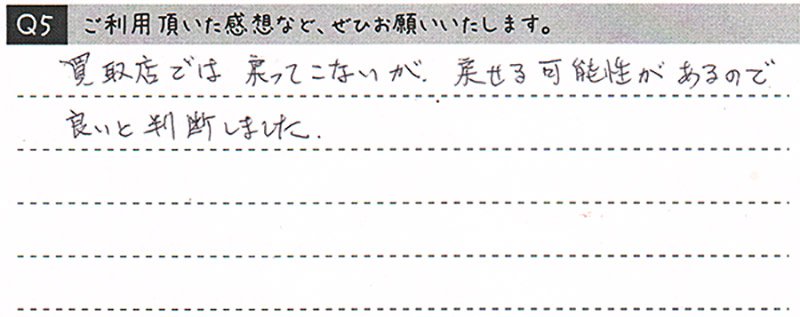 Q5 ご利用頂いた感想など、ぜひお願いいたします。
買取店では戻ってこないが、戻せる可能性があるので
良いと判断しました.